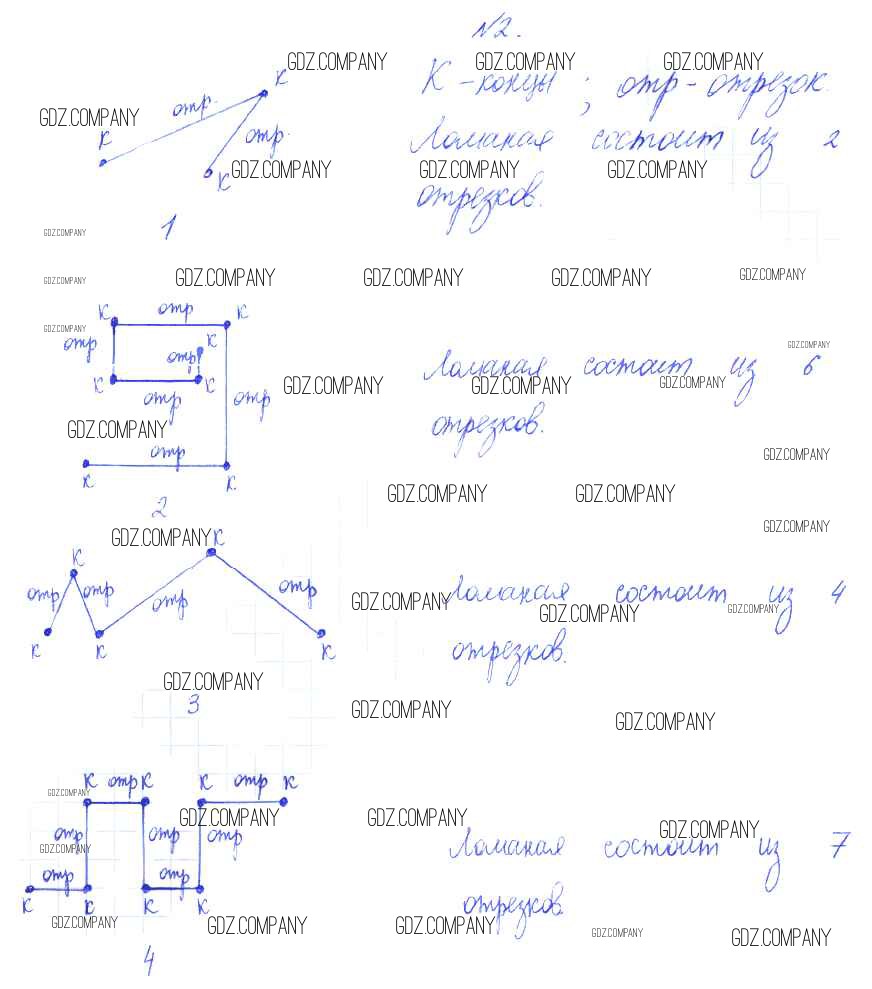 N2.
GDZ.COMPANY GDZ.COMPANY GDZ.COMPANY
К - концы ; отр - отрезок.
отр. К
GDZ.COMPANY
К отр.
Ломаная состоит из 2
К GDZ.COMPANY GDZ.COMPANY GDZ.COMPANY
отрезков.
1
GDZ.COMPANY
GDZ.COMPANY GDZ.COMPANY GDZ.COMPANY GDZ.COMPANY GDZ.COMPANY
К отр К
GDZ.COMPANY
отр отр К
GDZ.COMPANY
Ломаная состоит из 6
К К GDZ.COMPANY GDZ.COMPANY GDZ.COMPANY
отр отр
GDZ.COMPANY отрезков.
отр GDZ.COMPANY
К К
GDZ.COMPANY GDZ.COMPANY
2
GDZ.COMPANY
GDZ.COMPANY К
К
отр отр отр отр
Ломаная состоит из 4
GDZ.COMPANY GDZ.COMPANY GDZ.COMPANY
К К К отрезков.
GDZ.COMPANY
3 GDZ.COMPANY GDZ.COMPANY
К отр К К отр К
GDZ.COMPANY
GDZ.COMPANY GDZ.COMPANY GDZ.COMPANY
отр отр отр
Ломаная состоит из 7
GDZ.COMPANY
отр отр
К К К К отрезков.
GDZ.COMPANY GDZ.COMPANY GDZ.COMPANY GDZ.COMPANY GDZ.COMPANY
4